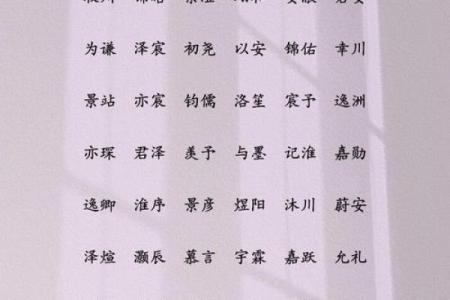 为谦 泽宸 初尧 以安 锦佑 幸川
景站 亦宸 钧儒 洛笙 宸予 逸洲
亦琛 君泽 羡予 与墨 记淮 嘉勋
逸卿 淮序 景彦 煜阳 沐川 蔚安
泽煊 灏辰 慕言 宇霖 嘉跃 允礼